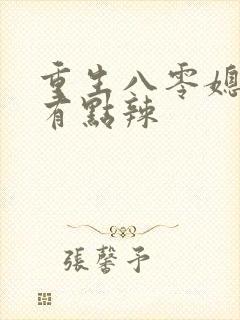 重生八零媳
有點辣
張馨予